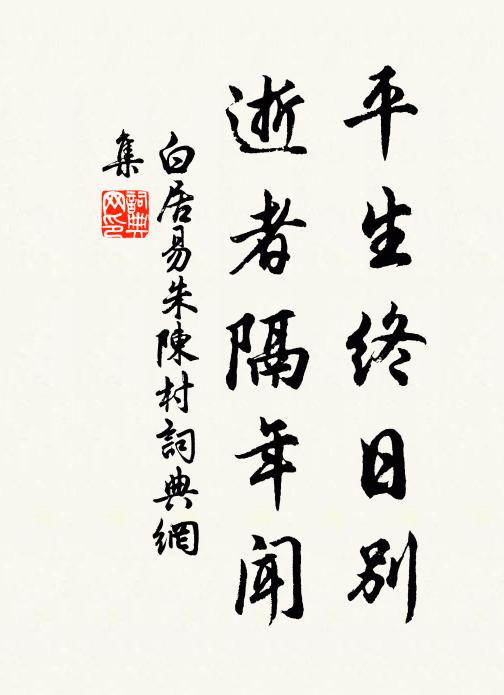 平生终日别
逝者隔年闻
白居易朱陳村詞典網
集
詞典
网印